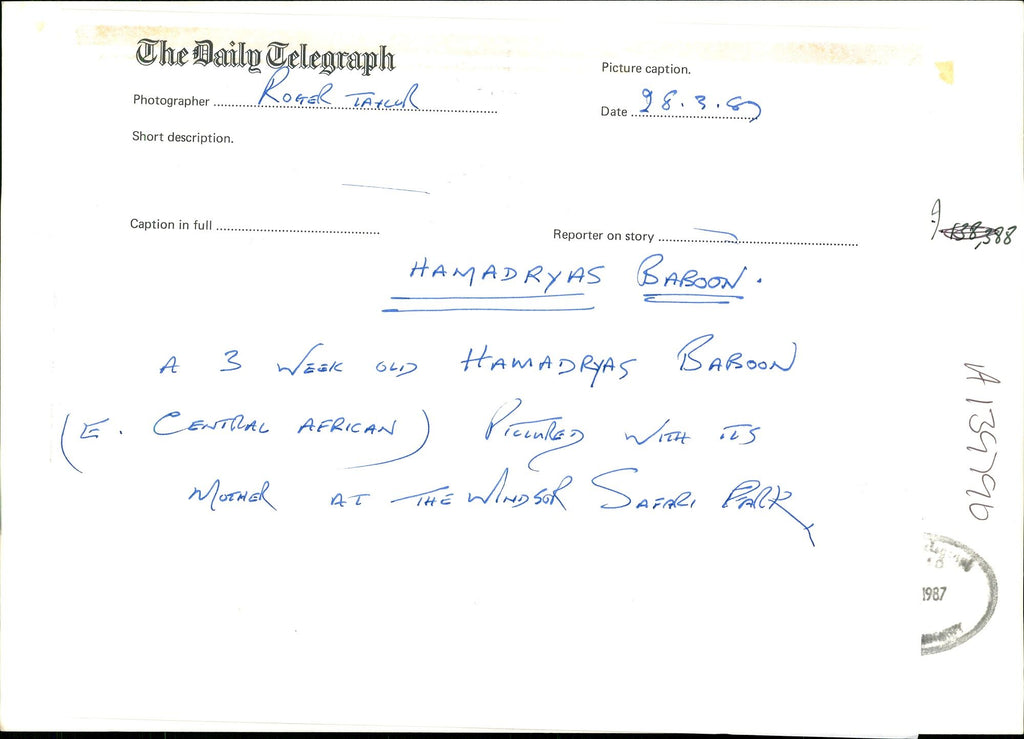 The Daily Telegraph
Picture caption.
Photographer Roger Taylor
Date 28.3.87
Short description.
Caption in full
Reporter on story
HAMADRYAS BABOON.
A 3 WEEK OLD HAMADRYAS BABOON
(E. CENTRAL AFRICAN) PICTURED WITH ITS
MOTHER AT THE WINDSOR SAFARI PARK
A139796
1987